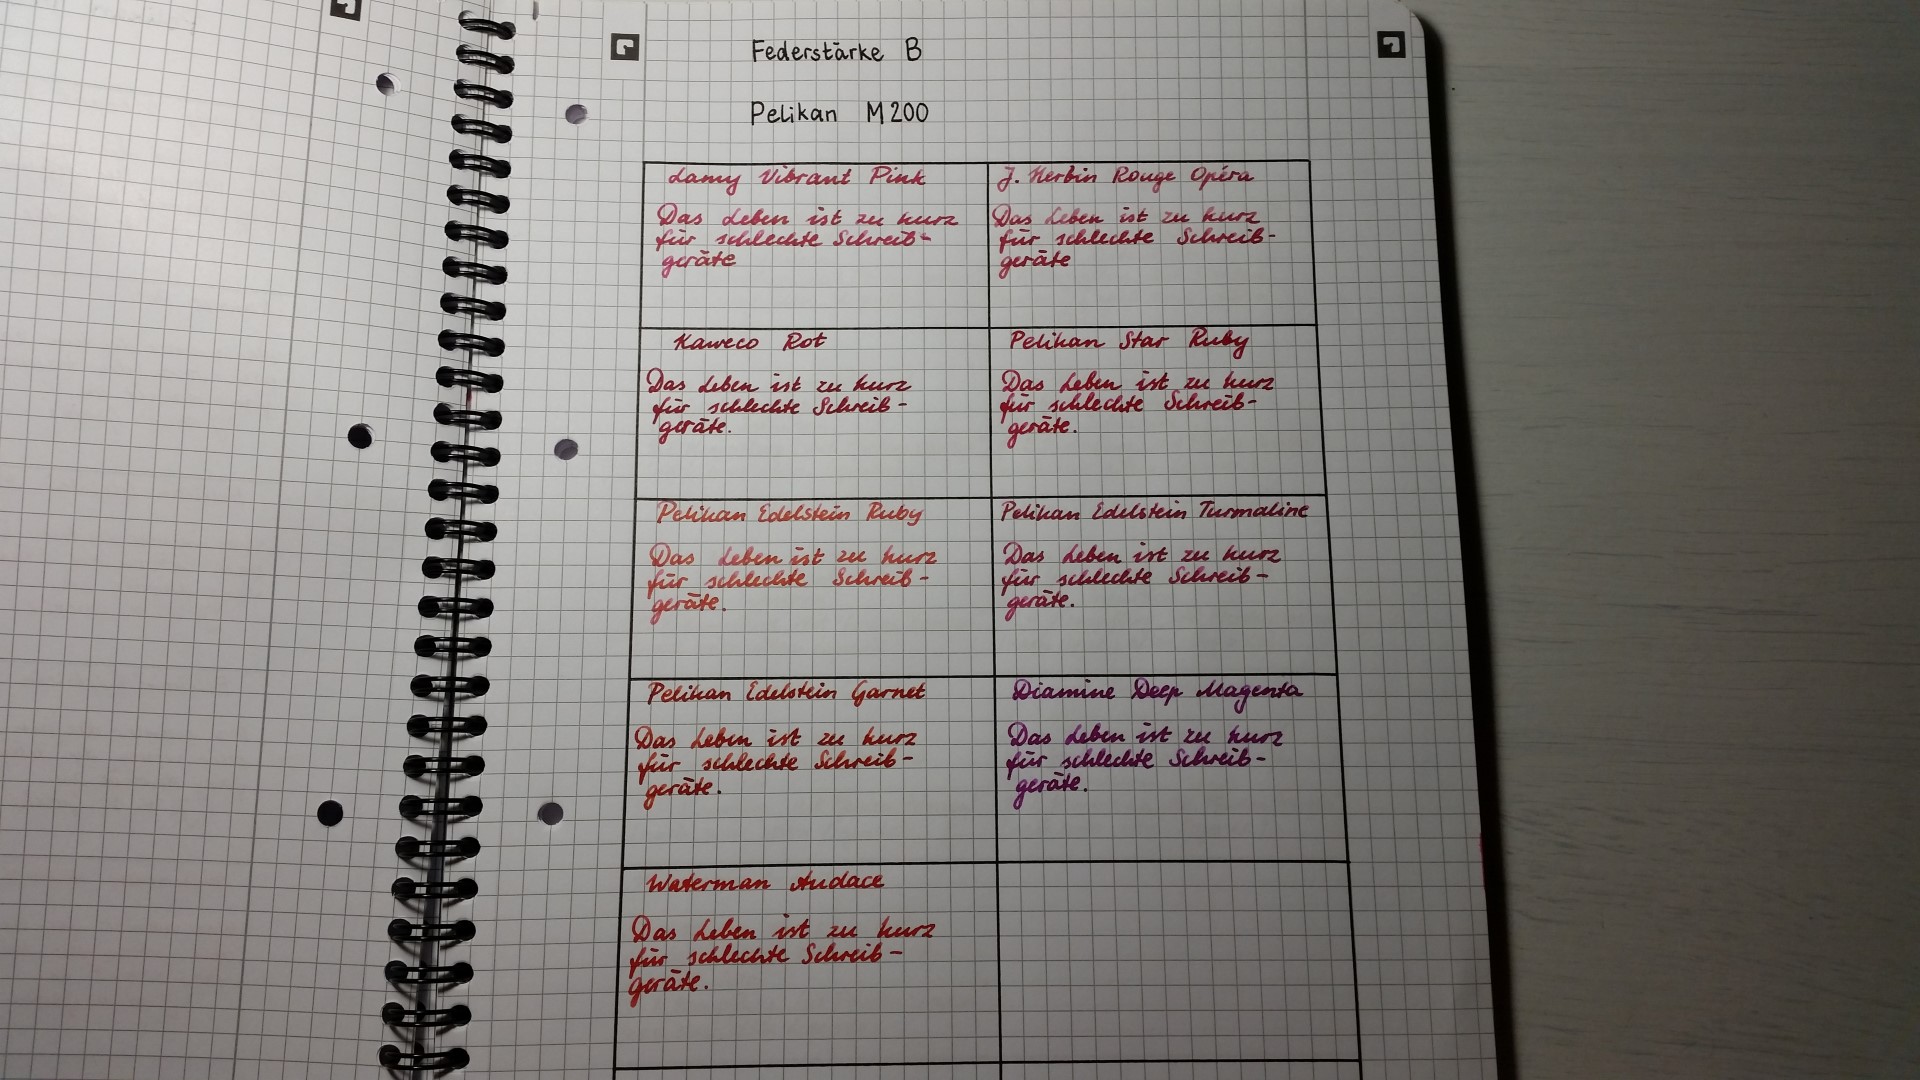 Federstärke B
Pelikan M200
Lamy Vibrant Pink
Das Leben ist zu kurz
für schlechte Schreib-
geräte
J. Herbin Rouge Opéra
Das Leben ist zu kurz
für schlechte Schreib-
geräte
Kaweco Rot
Das Leben ist zu kurz
für schlechte Schreib-
geräte.
Pelikan Star Ruby
Das Leben ist zu kurz
für schlechte Schreib-
geräte.
Pelikan Edelstein Ruby
Das Leben ist zu kurz
für schlechte Schreib-
geräte.
Pelikan Edelstein Turmaline
Das Leben ist zu kurz
für schlechte Schreib-
geräte.
Pelikan Edelstein Garnet
Das Leben ist zu kurz
für schlechte Schreib-
geräte.
Diamine Deep Magenta
Das Leben ist zu kurz
für schlechte Schreib-
geräte.
Waterman Audace
Das Leben ist zu kurz
für schlechte Schreib-
geräte.